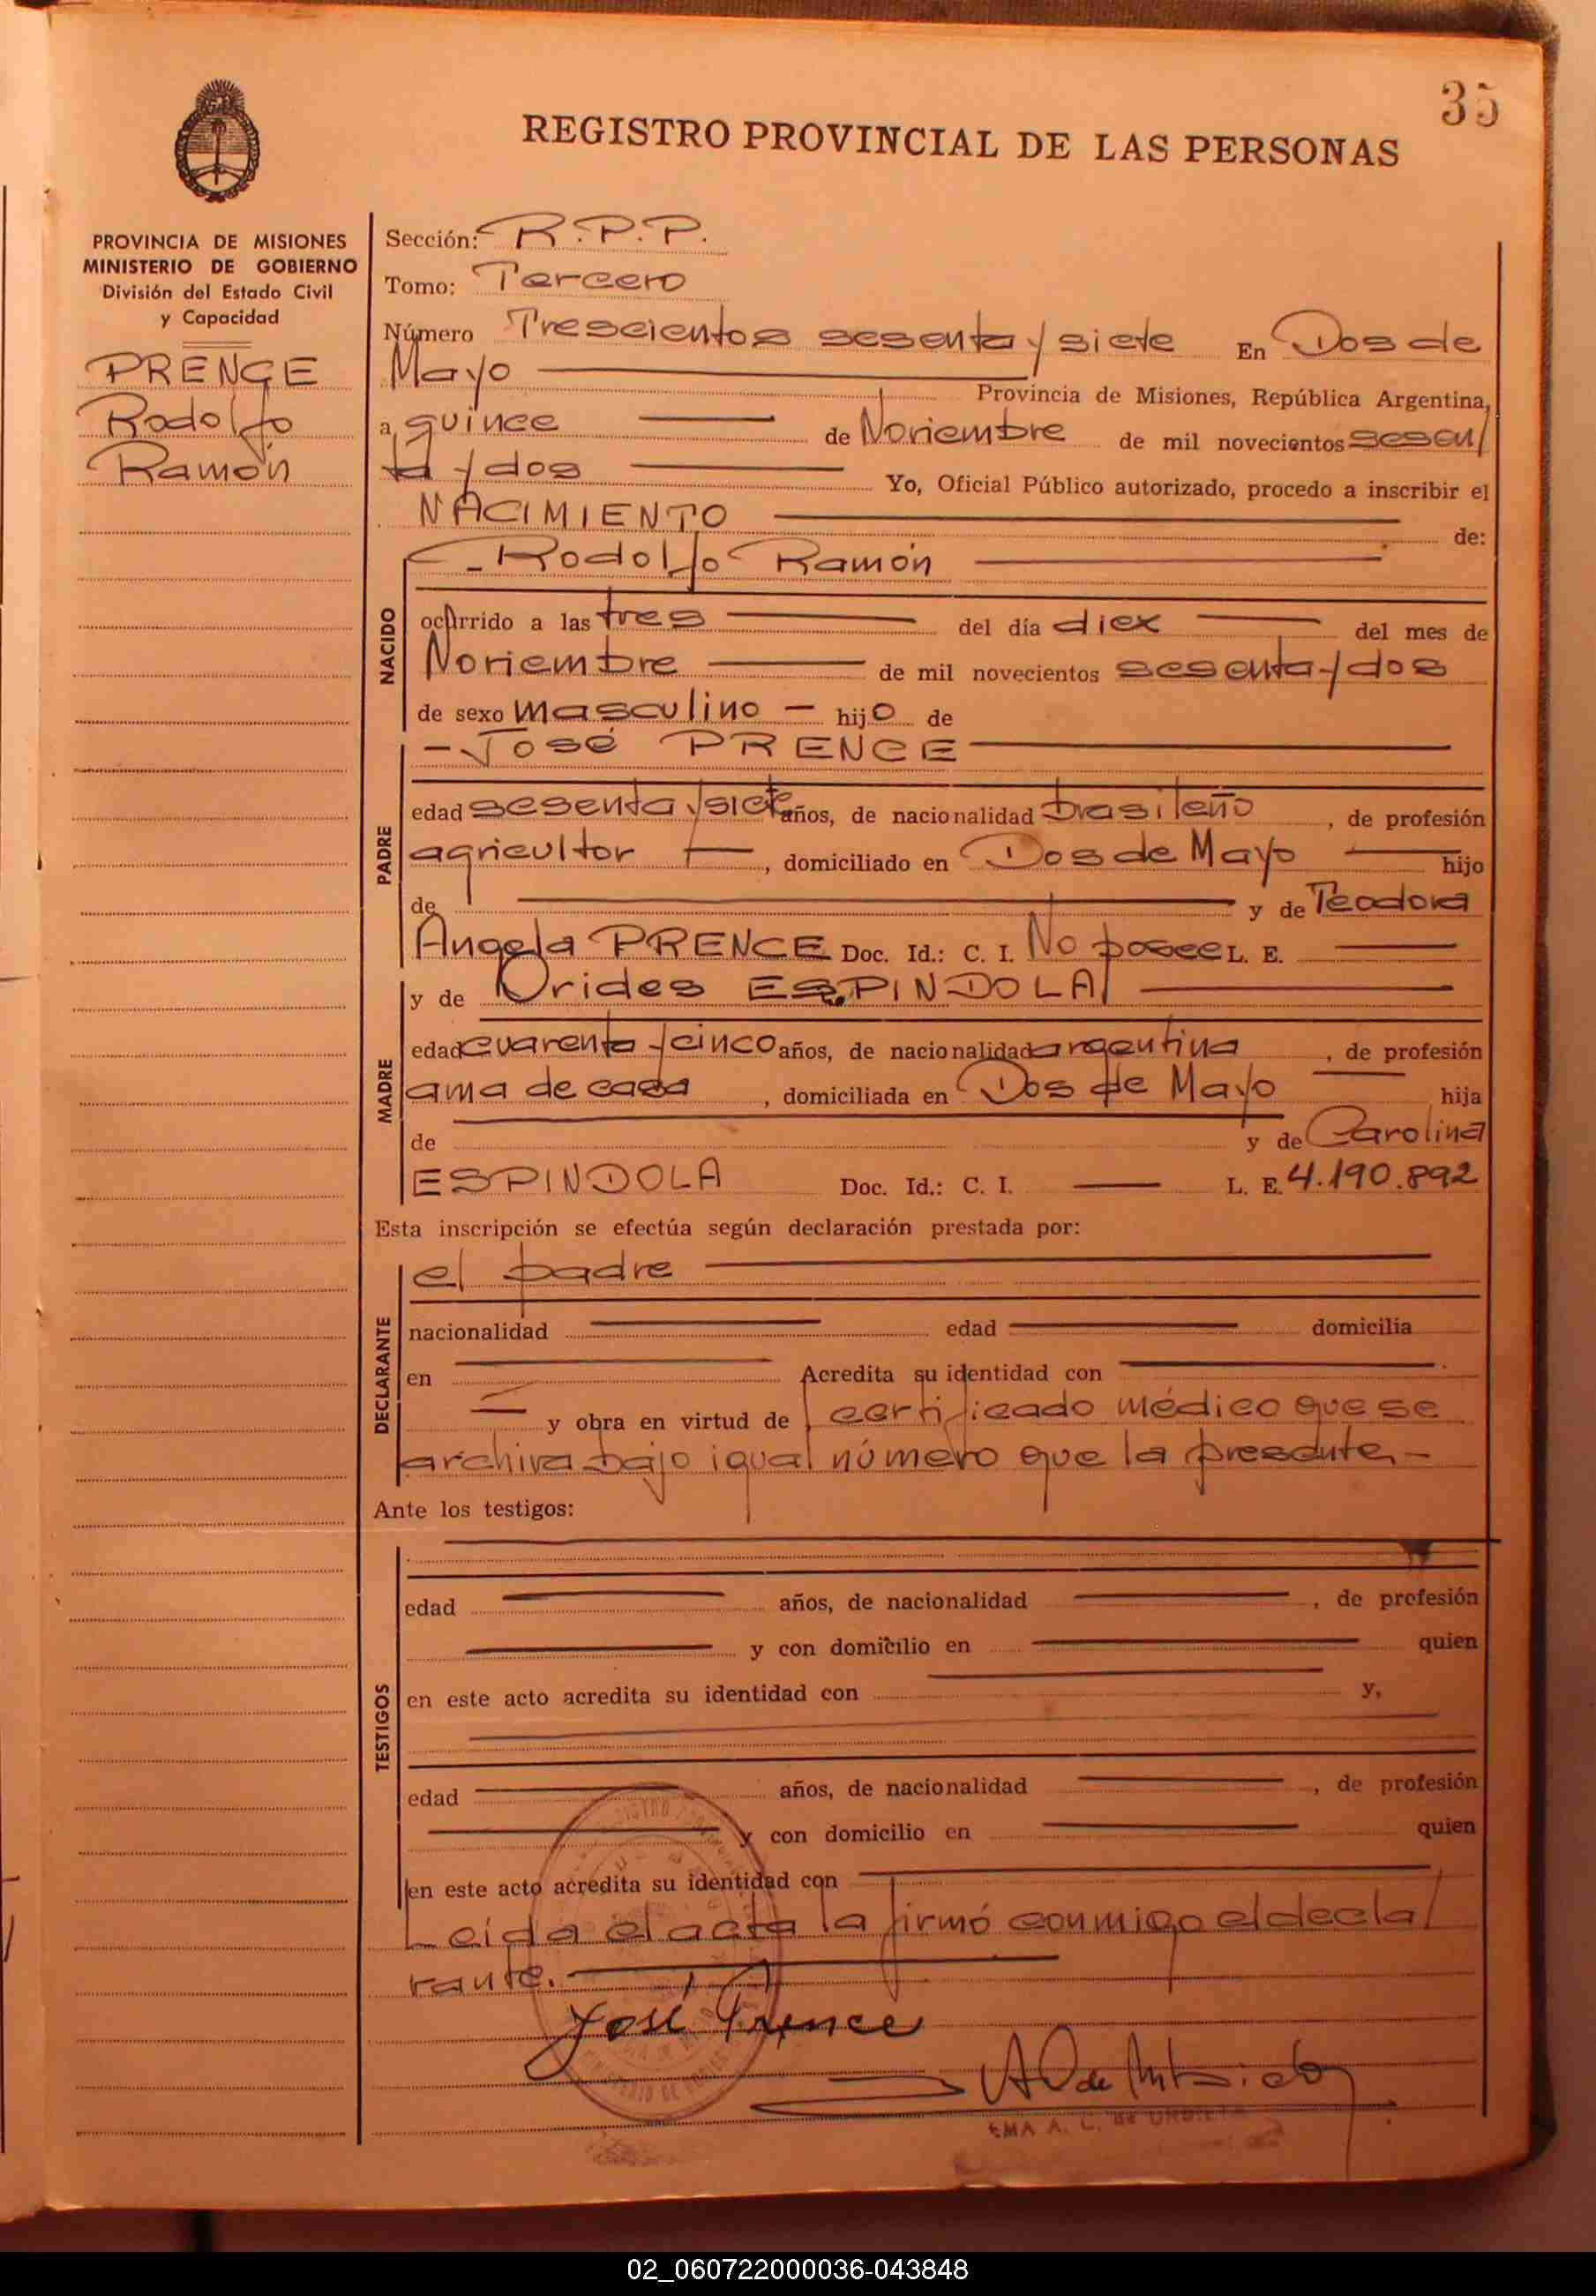 35
REGISTRO PROVINCIAL DE LAS PERSONAS
PROVINCIA DE MISIONES
MINISTERIO DE GOBIERNO
División del Estado Civil
y Capacidad
PRENCE
Rodolfo
Ramón
Sección: R.P.P.
Tomo: Tercero
Número Trescientos sesenta y siete En Dos de
Mayo Provincia de Misiones, República Argentina,
a quince de Noviembre de mil novecientos sesen/
ta y dos Yo, Oficial Público autorizado, procedo a inscribir el
NACIMIENTO de:
NACIDO
- Rodolfo Ramón
ocurrido a las tres del día diex del mes de
Noviembre de mil novecientos sesenta y dos
de sexo masculino - hijo de
PADRE
- José PRENCE
edad sesenta y siete años, de nacionalidad brasileño, de profesión
agricultor, domiciliado en Dos de Mayo hijo
de y de Teodora
Angela PRENCE Doc. Id.: C. I. No posee L. E.
MADRE
y de Orides ESPINDOLA
edad cuarenta y cinco años, de nacionalidad argentina, de profesión
ama de casa, domiciliada en Dos de Mayo hija
de y de Carolina
ESPINDOLA Doc. Id.: C. I. L. E. 4.190.892
Esta inscripción se efectúa según declaración prestada por:
DECLARANTE
el padre
nacionalidad edad domicilia
en Acredita su identidad con
y obra en virtud de certificado médico que se
archiva bajo igual número que la presente.-
Ante los testigos:
TESTIGOS
edad años, de nacionalidad, de profesión
y con domicilio en quien
en este acto acredita su identidad con y,
edad años, de nacionalidad, de profesión
y con domicilio en quien
en este acto acredita su identidad con
Leída el acta la firmó conmigo el decla/
rante.
José Prence
02_060722000036-043848